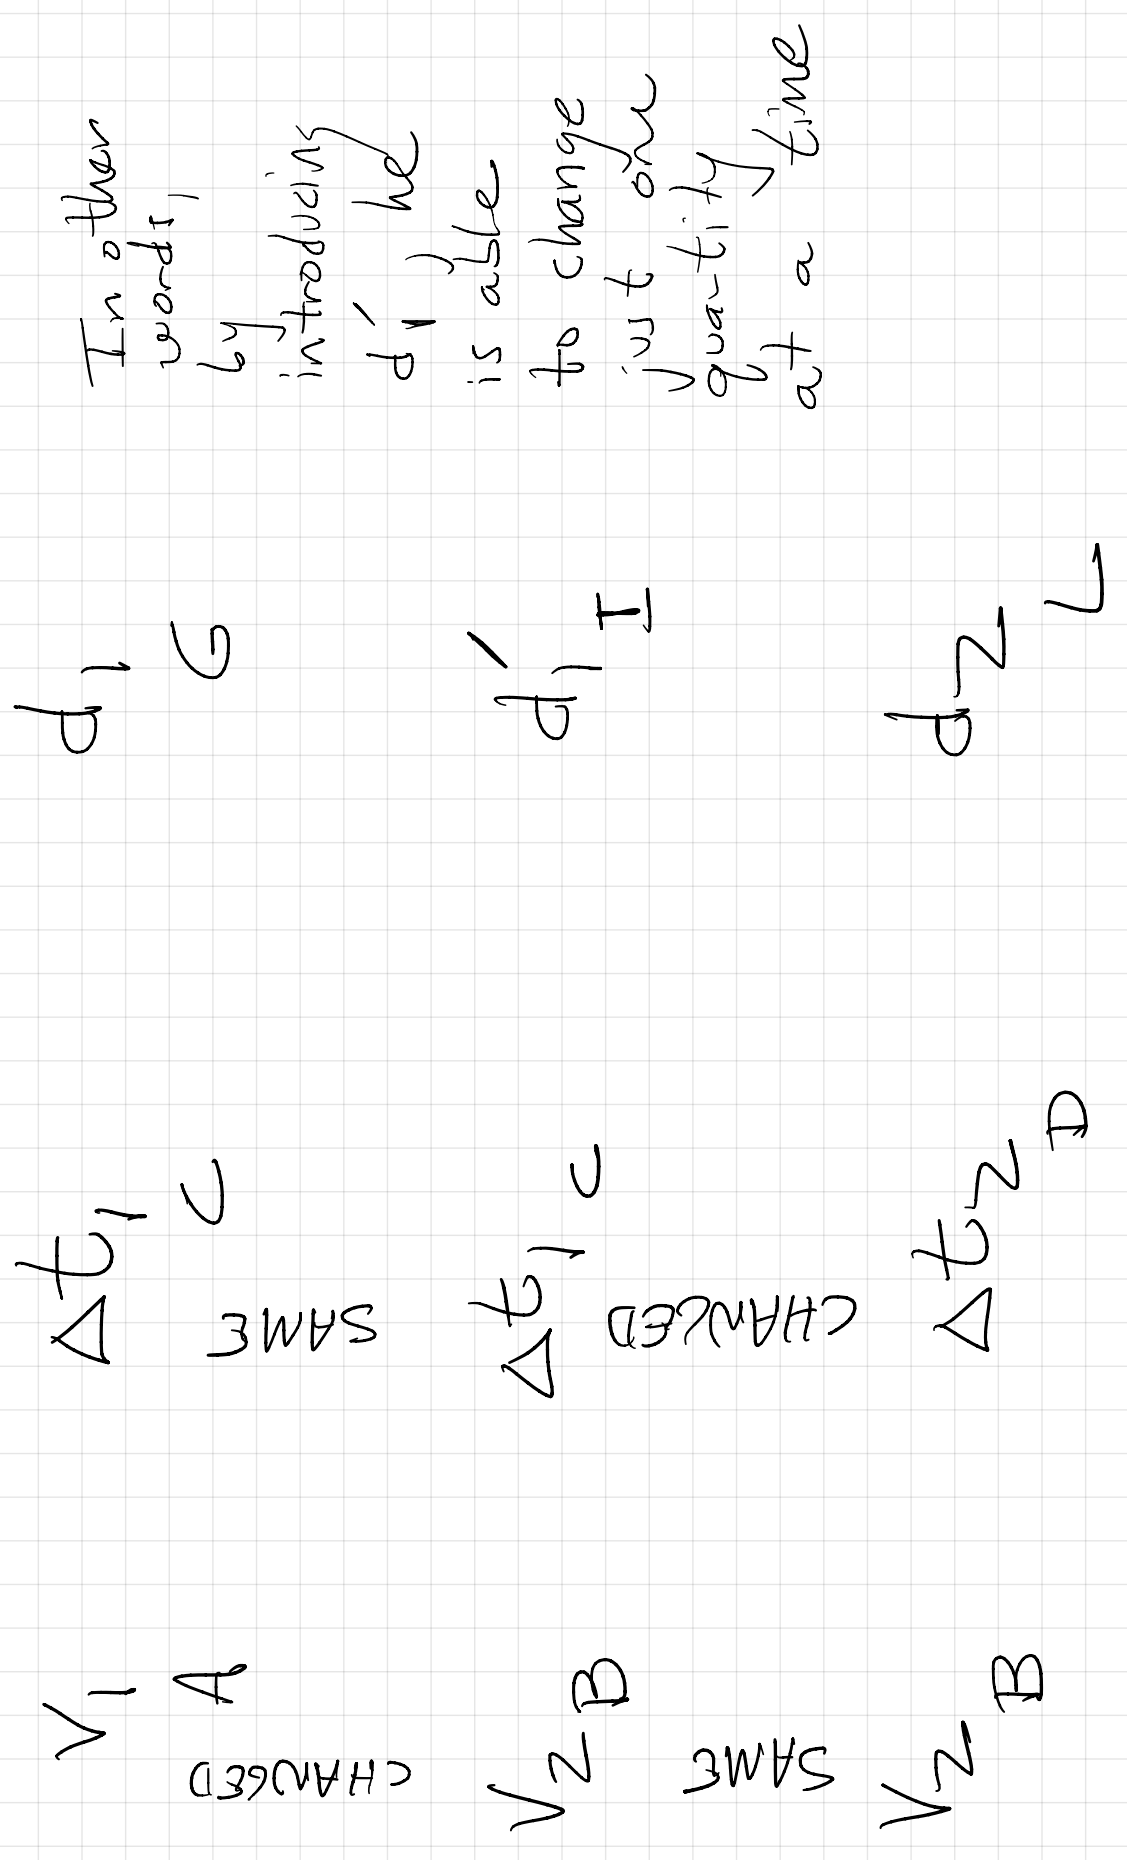 V1 Δt1 d1
A C G
CHANGED SAME
V2 Δt1 d1′
B C I
SAME CHANGED
V2 Δt2 d2
B D L
In other
words,
by
introducing
d1′, he
is able
to change
just one
quantity
at a time